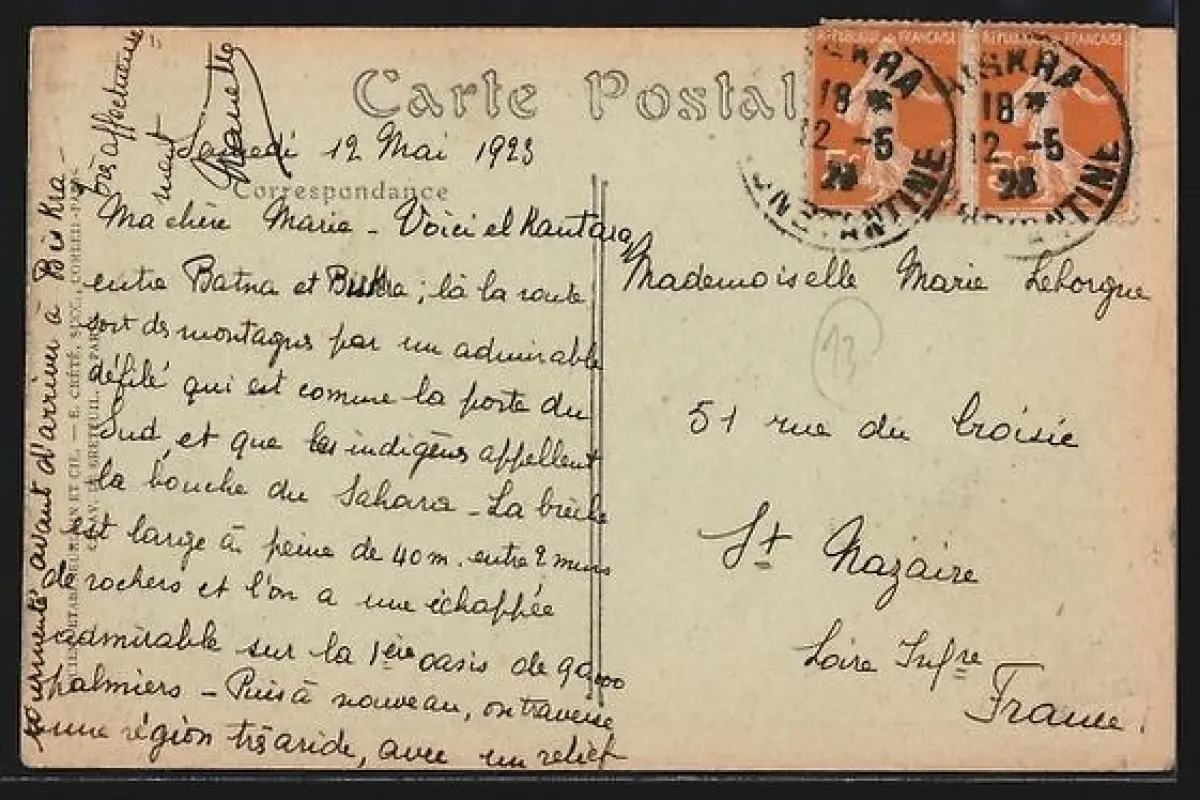 Carte Postale
Correspondance
Samedi 12 Mai 1923
Ma chère Marie - Voici el Kantara,
entre Batna et Biskra ; là la route
sort des montagnes par un admirable
défilé qui est comme la porte du
Sud, et que les indigènes appellent
la bouche du Sahara - La brèche
est large à peine de 40 m. entre 2 murs
de rochers et l'on a une échappée
admirable sur la 1ère oasis de 90.000
palmiers - Puis à nouveau, on traverse
une région très aride, avec un relief
tourmenté avant d'arriver à Biskra -
très affectueuse
ment
Mademoiselle Marie Leborgne
51 rue du Croisic
St Nazaire
Loire Infre
France.
13
RÉPUBLIQUE FRANÇAISE
RÉPUBLIQUE FRANÇAISE
BISKRA
18 *
12 -5
23
CONSTANTINE
BISKRA
18 *
12 -5
23
CONSTANTINE
ET CIE. — E. CRÉTÉ, SUCC., CORBEIL-PARIS